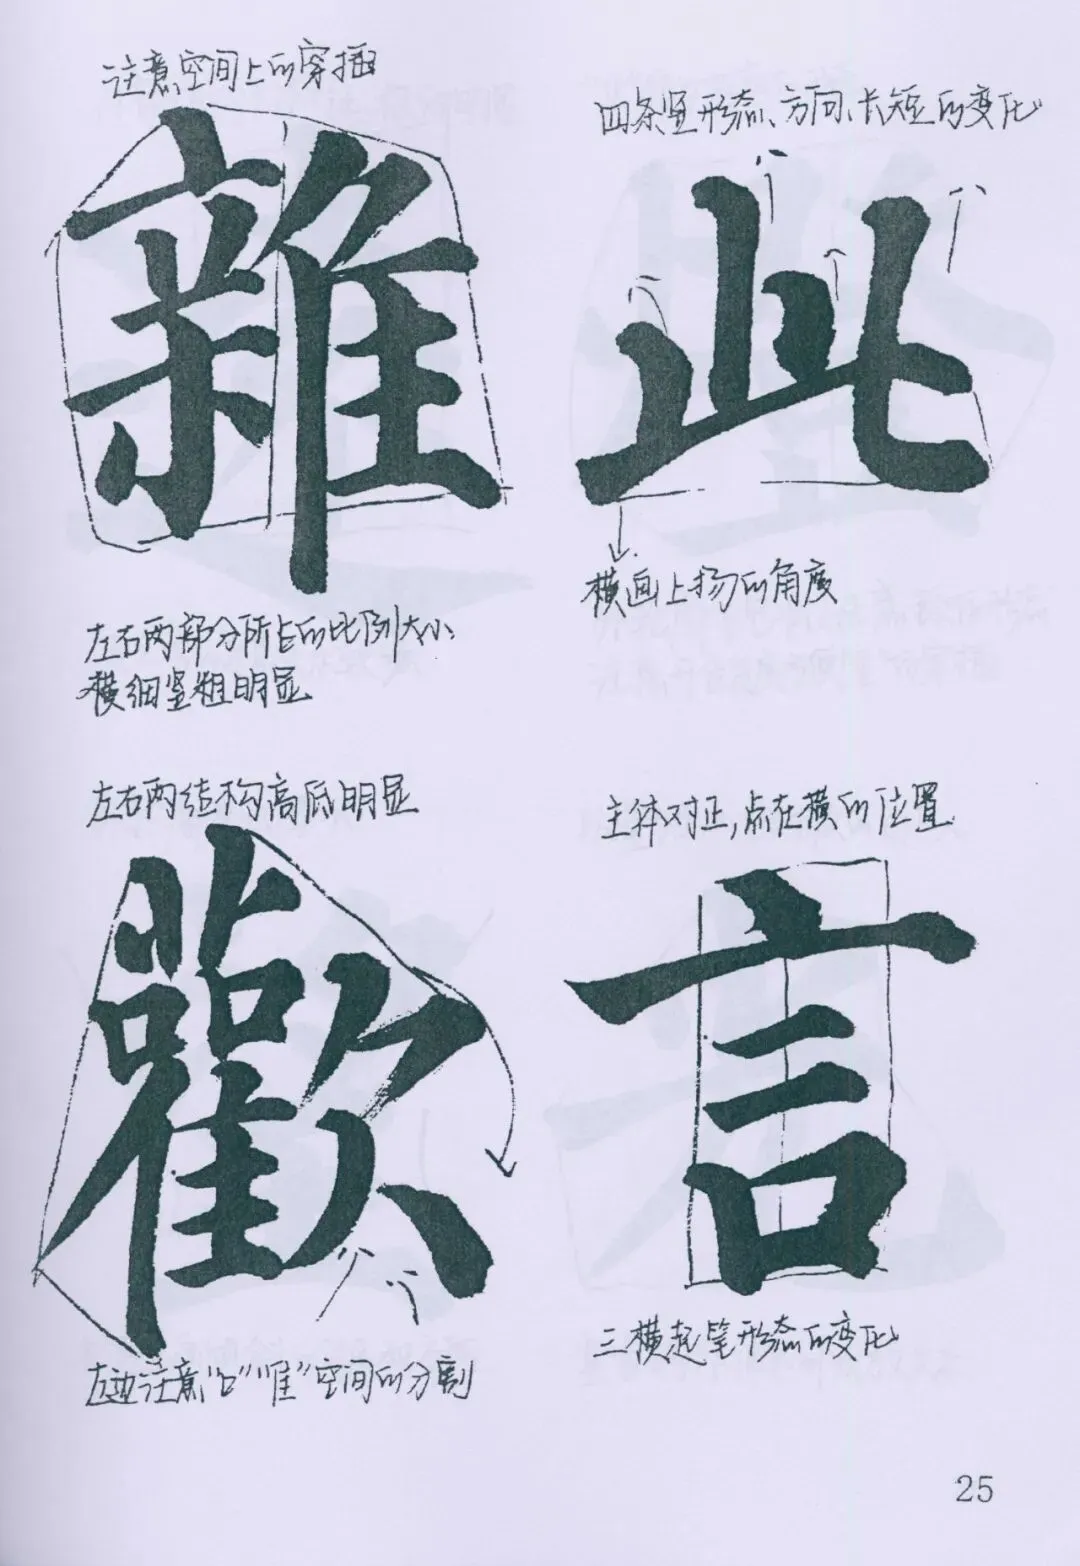 注意空间上的穿插
雜
左右两部分所占的比例大小
横细竖粗明显
四条竖形态、方向、长短的变化
此
横画上扬的角度
左右两结构高低明显
歡
左边注意“口”“隹”空间的分割
主体对正,点在横的位置
言
三横起笔形态的变化
25